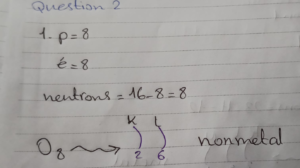 Question 2
1. p = 8
e = 8
neutrons = 16 - 8 = 8
K L
O₈ 2 6 nonmetal